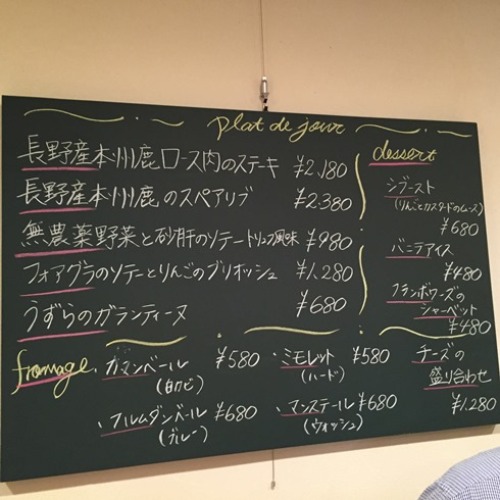 plat de jour
長野産本州鹿ロース肉のステーキ ¥2,180
長野産本州鹿のスペアリブ ¥2,380
無農薬野菜と砂肝のソテートリュフ風味 ¥980
フォアグラのソテーとりんごのブリオッシュ ¥1,280
うずらのガランティーヌ ¥680
dessert
シブースト
(りんごとカスタードのムース)
¥680
バニラアイス
¥480
フランボワーズの
シャーベット
¥480
fromage
・カマンベール ¥580
(白カビ)
・ミモレット ¥580
(ハード)
・フルムダンベール ¥680
(ブルー)
・マンステール ¥680
(ウォッシュ)
チーズの
盛り合わせ
¥1,280